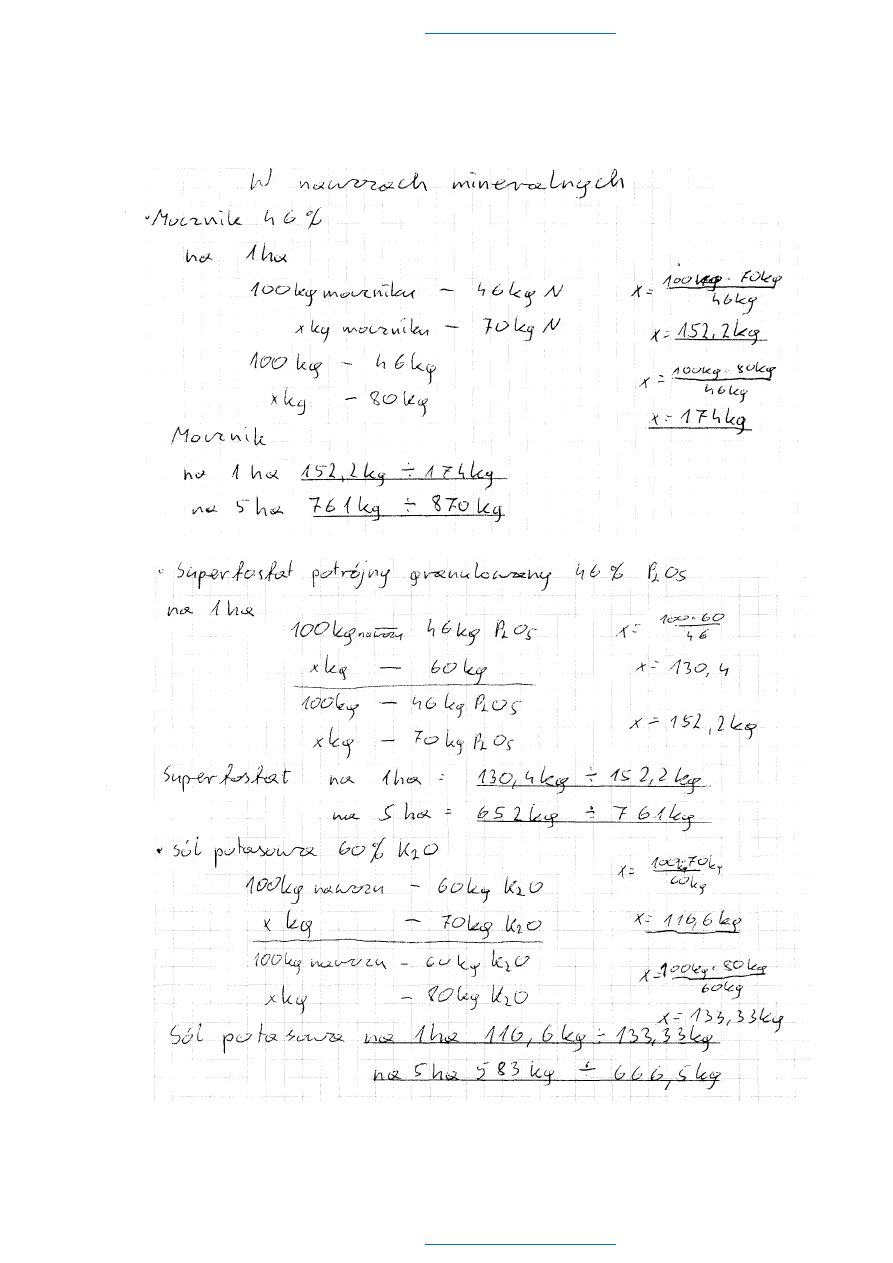 W nawozach mineralnych
• Mocznik 46%
na 1 ha
100kg mocznika – 46kg N x= 100kg · 70kg / 46kg
x kg mocznika – 70kg N x= 152,2kg
100 kg – 46kg x= 100kg · 80kg / 46kg
xkg – 80kg x= 174kg
Mocznik
na 1 ha 152,2kg ÷ 174kg
na 5ha 761kg ÷ 870kg
• Superfosfat potrójny granulowany 46% P2O5
na 1ha
100kg nawozu 46kg P2O5 x= 100·60 / 46
xkg – 60kg x= 130,4
100kg – 46kg P2O5
xkg – 70kg P2O5 x= 152,2kg
Superfosfat na 1ha = 130,4kg ÷ 152,2kg
na 5ha = 652kg ÷ 761kg
• Sól potasowa 60% K2O
100kg nawozu – 60kg K2O x= 100kg·70kg / 60kg
x kg – 70kg K2O x= 116,6kg
100kg nawozu – 60kg K2O x= 100kg·80kg / 60kg
xkg – 80kg K2O
x= 133,33kg
Sól potasowa na 1ha 116,6kg ÷ 133,33kg
na 5ha 583kg ÷ 666,5kg